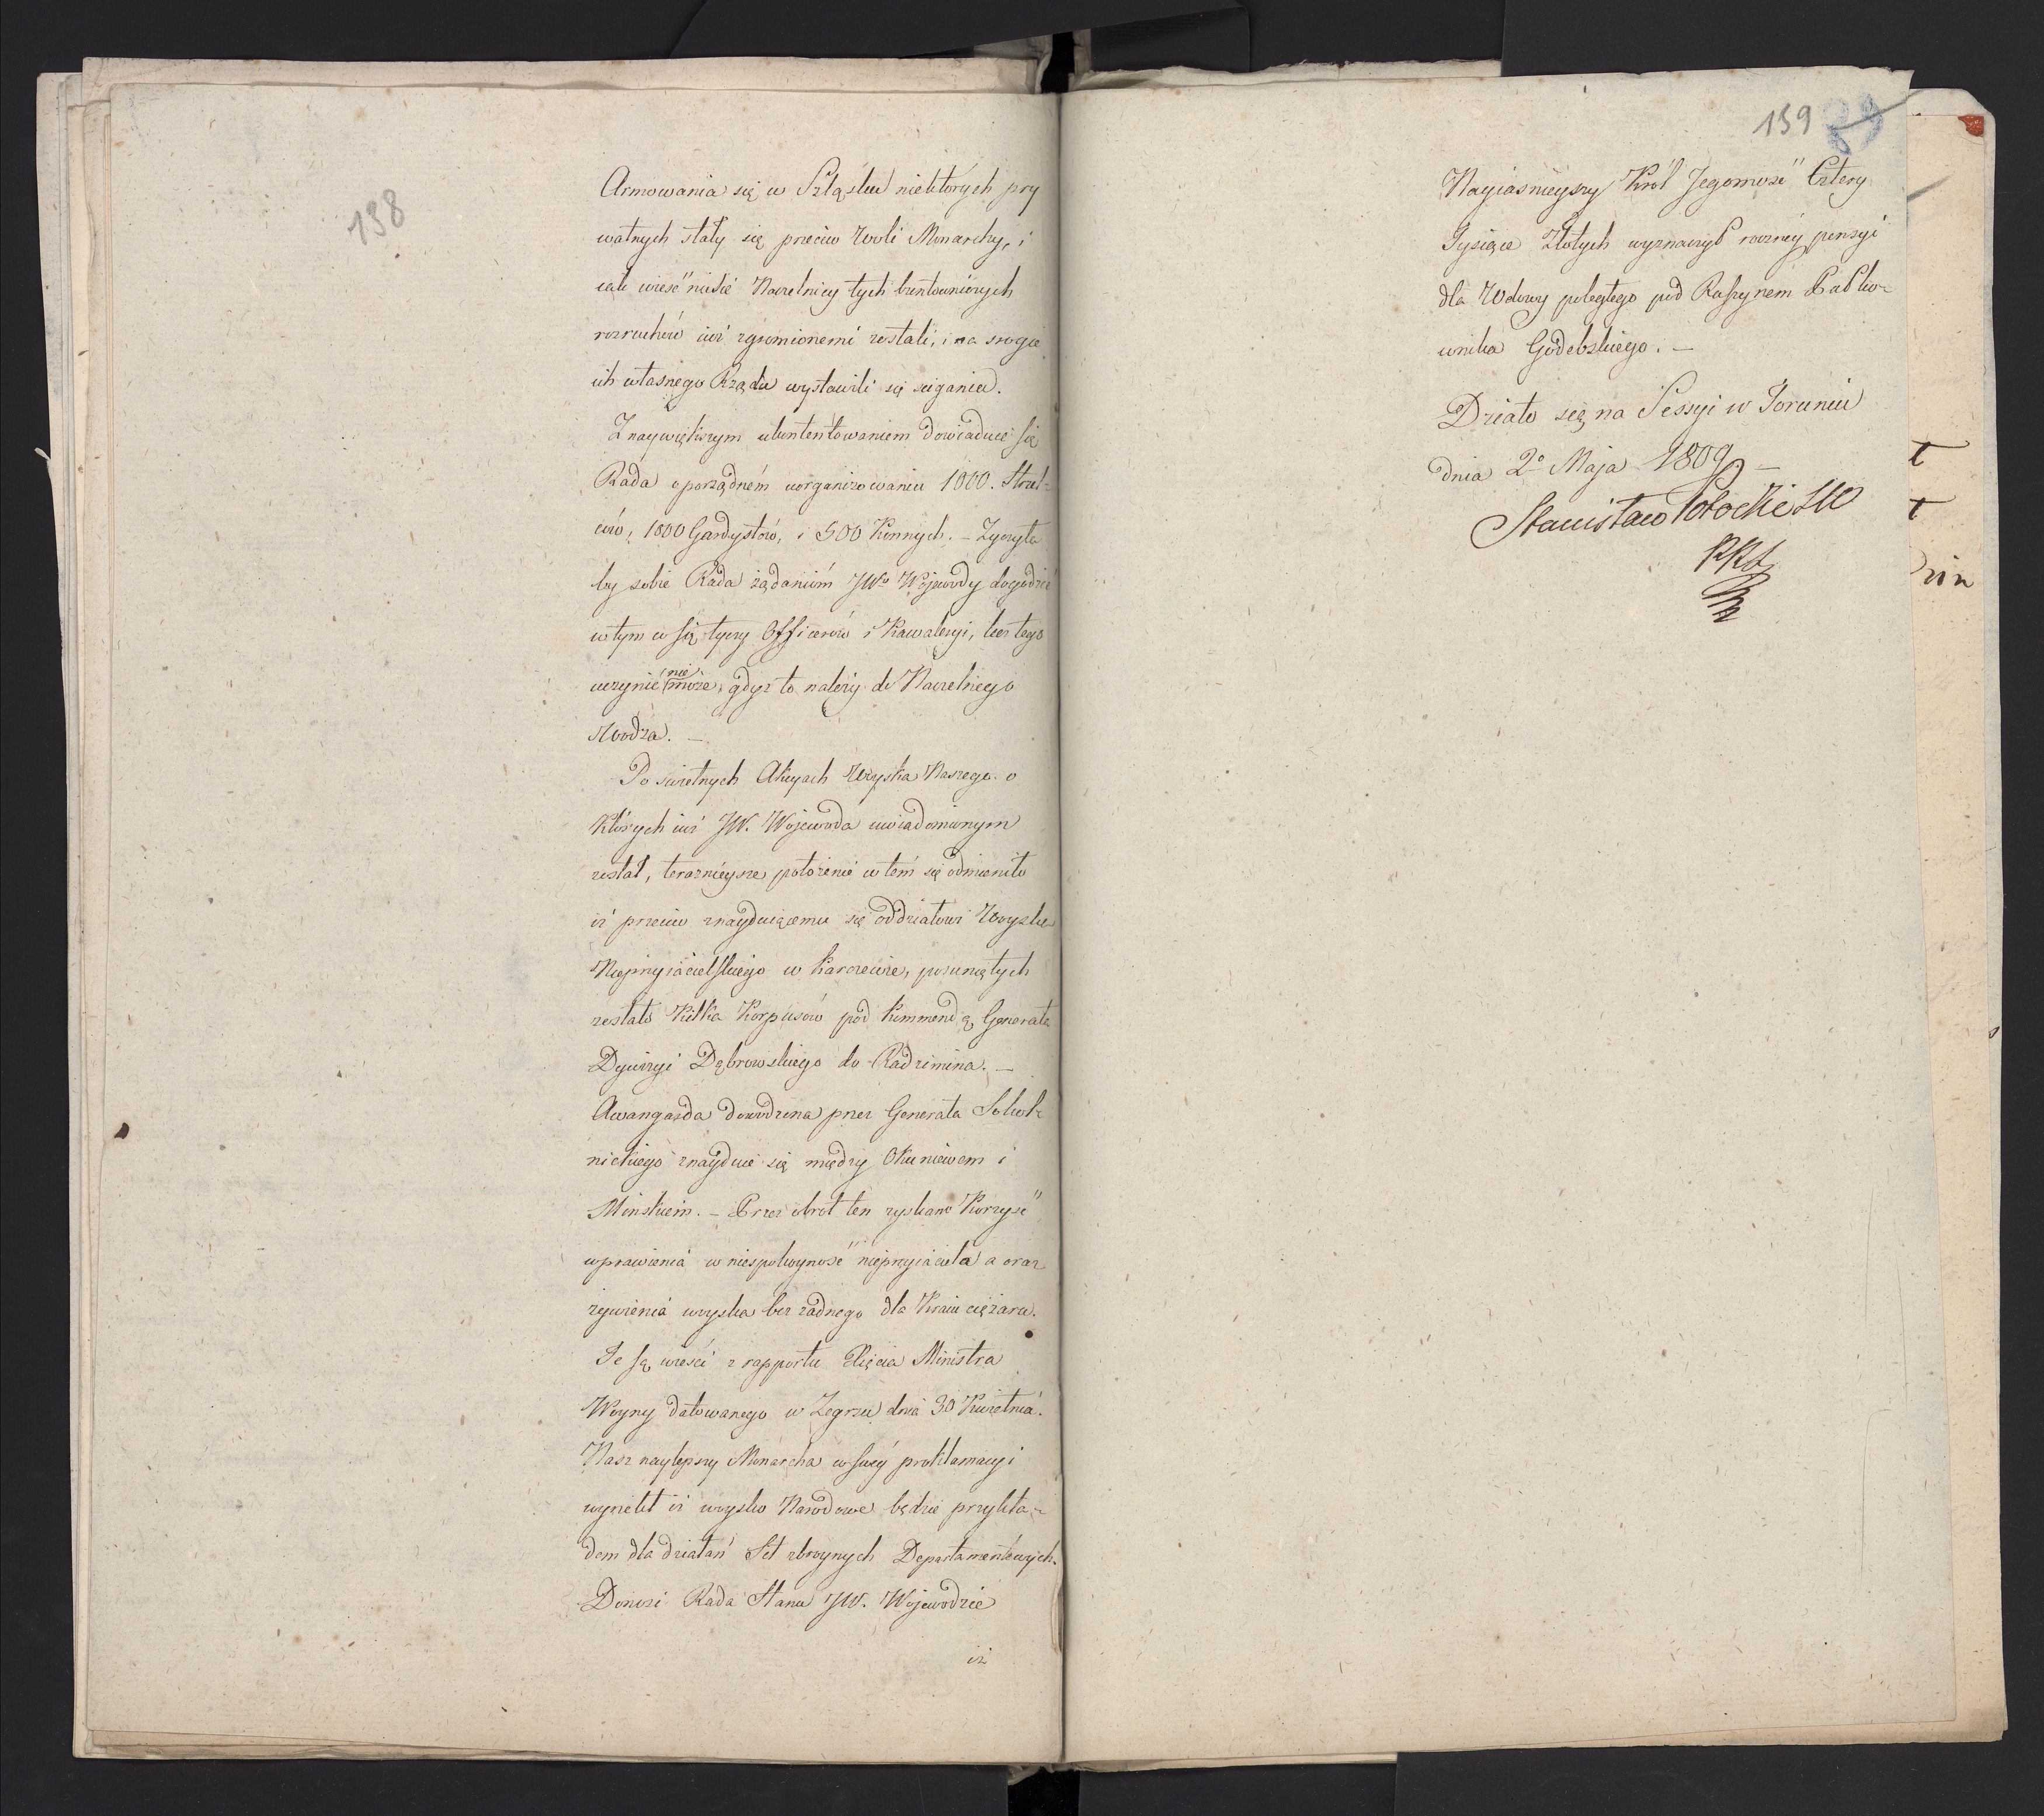 138
Armowania się w Szląsku niektórych pry
watnych stały się przeciw Woli Monarchy, i
iak wieść niesie Naczelnicy tych buntowniczych
rozruchów iuż zgromionemi zostali, i na srogie
ich własnego Rządu wystawili się sciganie.
Z naywiększym ukontentowaniem dowiaduie się
Rada o porządném uorganizowaniu 1000. Strzel=
ców, 1800 Gardystów, i 500 Konnych. – Zyczyła
by sobie Rada żądaniom JWo Wojewody dogodzić
w tym co się tyczy Officerów i Kawaleryi, lecz tego
uczynić nie może, gdyż to należy do Naczelnego
Wodza. –
Po swietnych Akcyach Woyska Naszego o
których iuż JW. Wojewoda uwiadomionym
został, teraznieysze położenie w tém się odmieniło
iż przeciw znayduiącemu się oddziałowi Woyska
Nieprzyiacielskiego w Karczewie, posuniętych
zostało Kilka Korpusów pod Kommendą Generała
Dywizyi Dąbrowskiego do Radzimina. –
Awangarda dowodzona przez Generała Sokol=
nickiego znayduie się między Okuniewem i
Minskiem. – Przez obrót ten zyskano Korzyść
wprawienia w niespokoyność nieprzyiaciela a oraz
żywienia woyska bez żadnego dla Kraiu ciężaru.
Te są wieści z rapportu Xięcia Ministra
Woyny datowanego w Zegrzu dnia 30 Kwietnia.
Nasz naylepszy Monarcha w swéy proklamacyi
wyrzekł iż woysko Narodowe będzie przykła=
dem dla działań Sił zbroynych Departamentowych.
Donosi Rada Stanu JW. Wojewodzie
iż
159
89
Nayiasnieyszy Król Jegomość Cztery
Tysiące Złotych wyznaczył roczney pensyi
dla Wdowy poległego pod Raszynem Pułko=
wnika Godebskiego. –
Działo się na Sessyi w Toruniu
dnia 2o Maja 1809 –
Stanisław Potocki SW